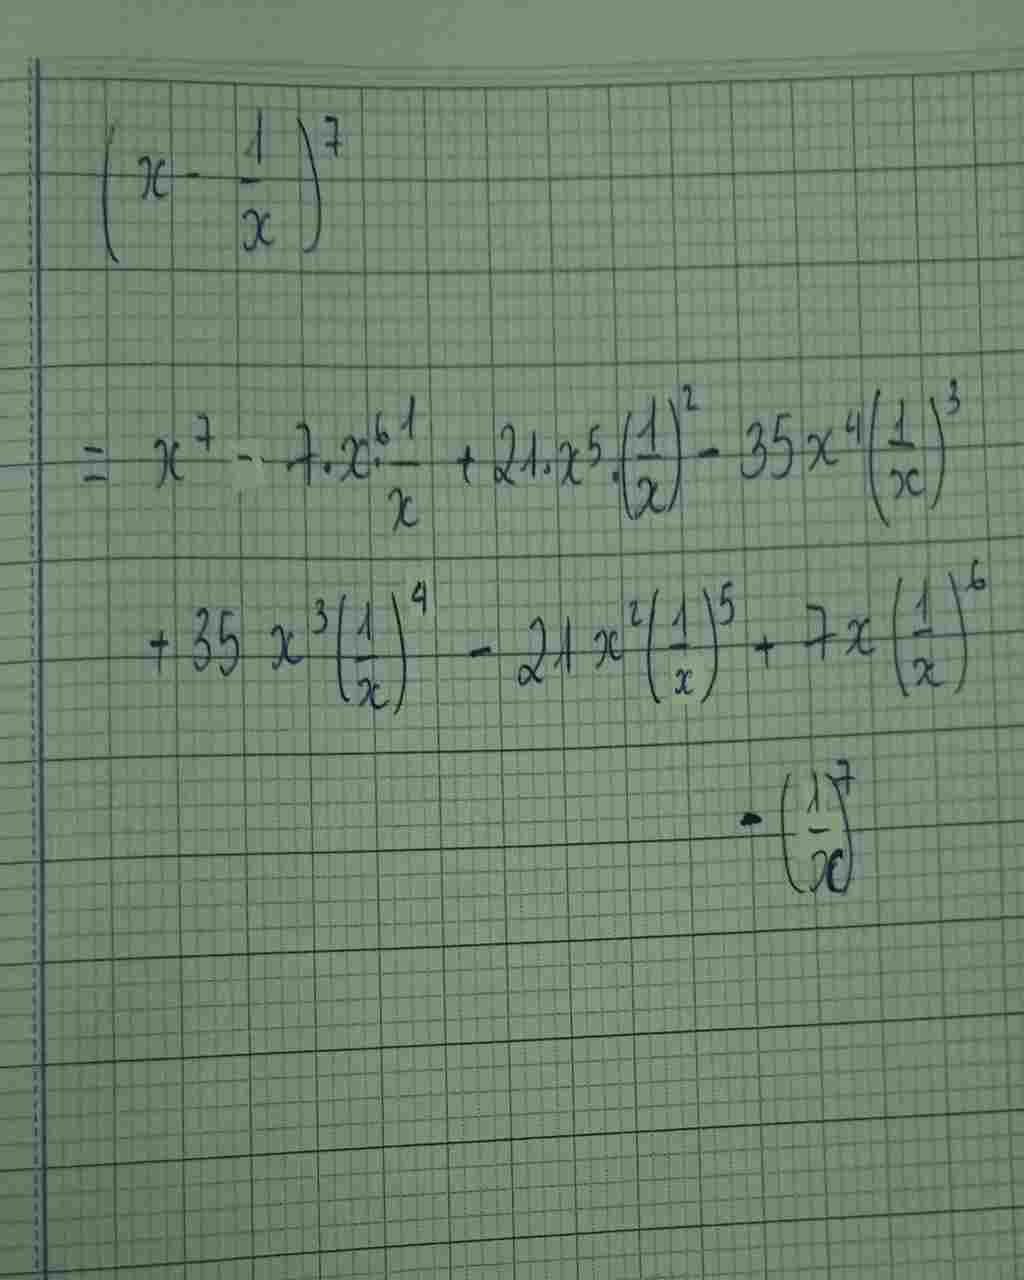 (x - 1/x)^7
= x^7 - 7.x^6.1/x + 21.x^5.(1/x)^2 - 35x^4(1/x)^3
+ 35 x^3(1/x)^4 - 21x^2(1/x)^5 + 7x(1/x)^6
- (1/x)^7